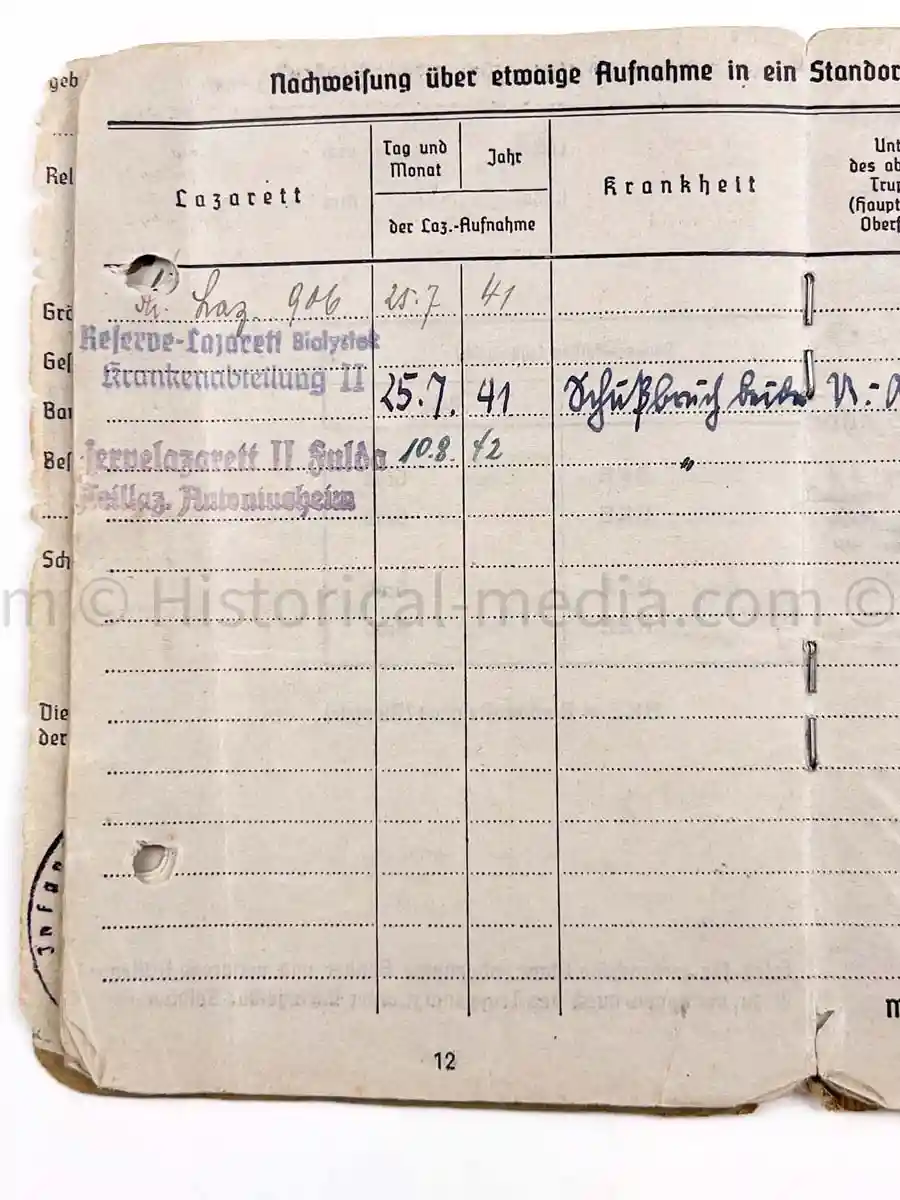 geb
Nachweisung über etwaige Aufnahme in ein Standor
Lazarett
Tag und
Monat
Jahr
der Laz.-Aufnahme
Krankheit
Unt
des ab
Trup
(Haupt
Oberf
Rel
Laz. 906 25.7 41
Grö
Reserve-Lazarett Bialystok
Krankenabteilung II
25.7. 41 Schußbruch beide U.-
Ges
Bar
Bes
servelazarett II Fulda 10.8. 42 "
Teillaz. Antoniusheim
Sch
m © Historical-media.com ©
Die
der
Infan
M
12